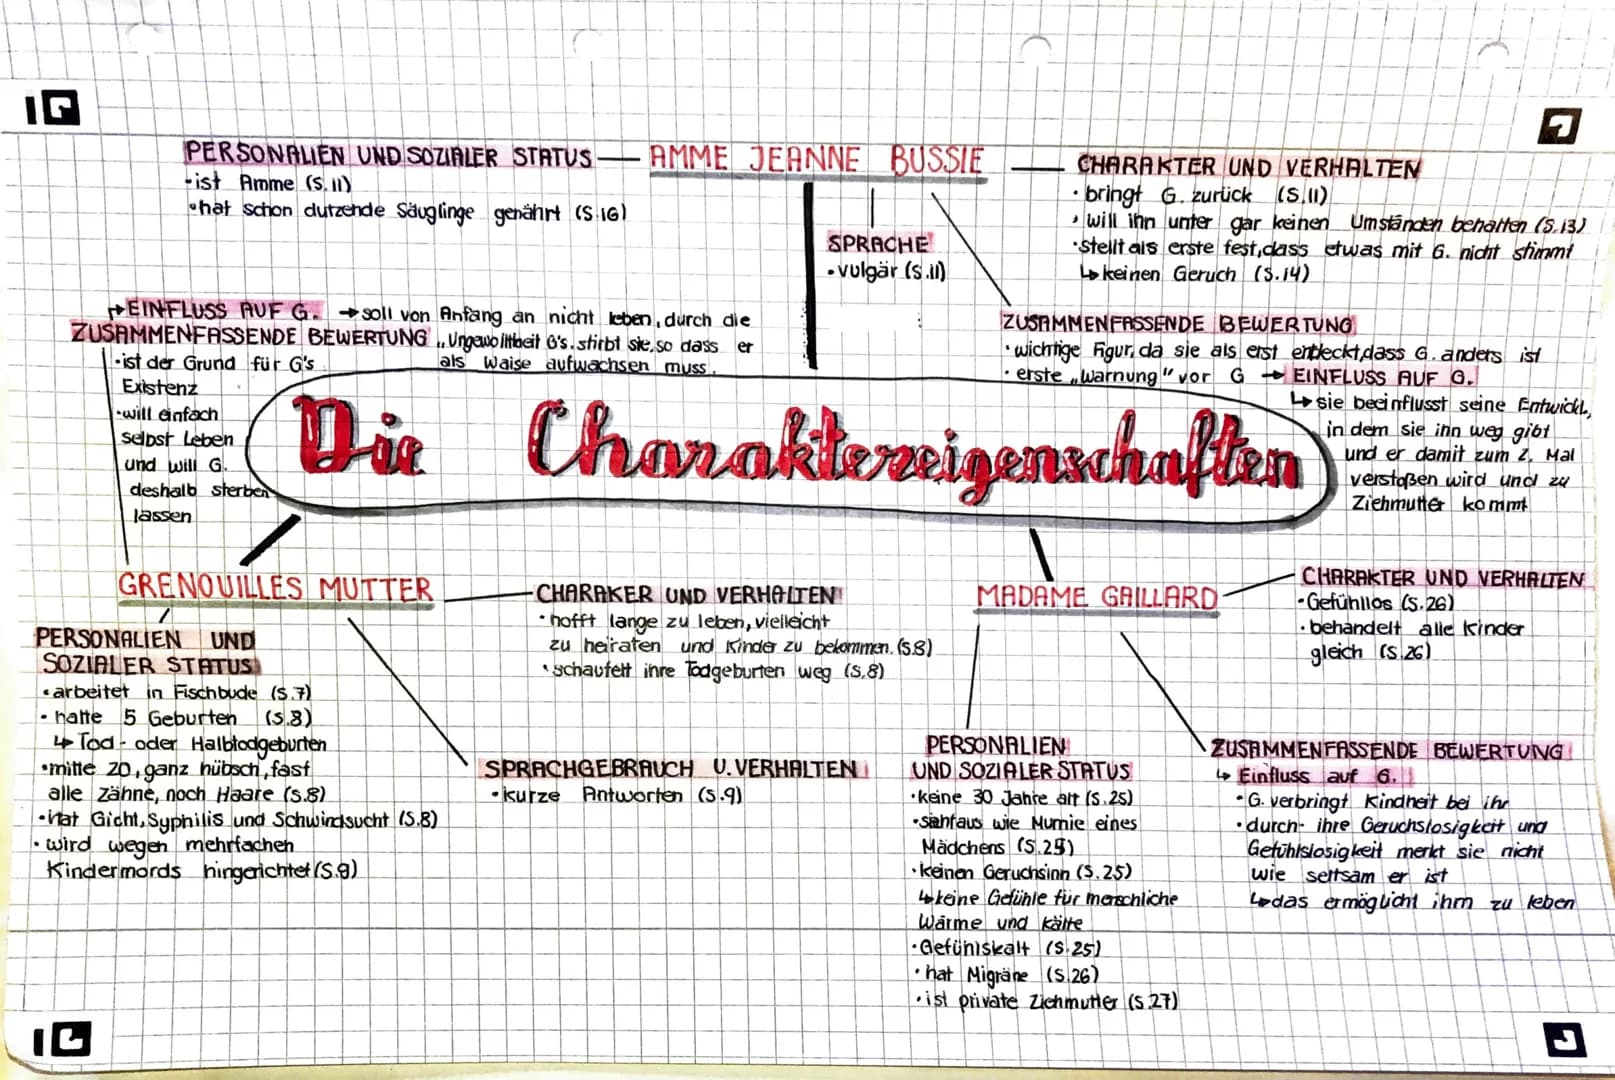 PERSONALIEN UND SOZIALER STATUS
• ist Amme (S. 11)
• hat schon dutzende Säuglinge genährt (S. 16)
AMME JEANNE BUSSIE
SPRACHE
• vulgär (S. 11)
CHARAKTER UND VERHALTEN
• bringt G. zurück (S. 11)
• will ihn unter gar keinen Umständen behalten (S. 13)
• stellt als erste fest, dass etwas mit G. nicht stimmt
↳ keinen Geruch (S. 14)
ZUSAMMENFASSENDE BEWERTUNG
• wichtige Figur, da sie als erst entdeckt, dass G. anders ist
• erste „Warnung" vor G → EINFLUSS AUF G.
↳ sie beeinflusst seine Entwickl.,
in dem sie ihn weg gibt
und er damit zum 2. Mal
verstoßen wird und zu
Ziehmutter kommt
→ EINFLUSS AUF G. → soll von Anfang an nicht leben, durch die
ZUSAMMENFASSENDE BEWERTUNG „Ungewolltheit G's. stirbt sie, so dass er
als Waise aufwachsen muss.
• ist der Grund für G's
Existenz
• will einfach
selbst Leben
und will G.
deshalb sterben
lassen
Die Charaktereigenschaften
GRENOUILLES MUTTER
PERSONALIEN UND
SOZIALER STATUS
• arbeitet in Fischbude (S. 7)
• hatte 5 Geburten (S. 8)
↳ Tod- oder Halbtodgeburten
• mitte 20, ganz hübsch, fast
alle Zähne, noch Haare (S. 8)
• hat Gicht, Syphilis und Schwindsucht (S. 8)
• wird wegen mehrfachen
Kindermords hingerichtet (S. 9)
CHARAKER UND VERHALTEN
• hofft lange zu leben, vielleicht
zu heiraten und Kinder zu bekommen. (S. 8)
• schaufelt ihre Todgeburten weg (S. 8)
SPRACHGEBRAUCH U. VERHALTEN
• kurze Antworten (S. 9)
MADAME GAILLARD
CHARAKTER UND VERHALTEN
• Gefühllos (S. 26)
• behandelt alle Kinder
gleich (S. 26)
PERSONALIEN
UND SOZIALER STATUS
• keine 30 Jahre alt (S. 25)
• sieht aus wie Mumie eines
Mädchens (S. 25)
• keinen Geruchsinn (S. 25)
↳ keine Gefühle für menschliche
Wärme und Kälte
• Gefühlskalt (S. 25)
• hat Migräne (S. 26)
• ist private Ziehmutter (S. 27)
ZUSAMMENFASSENDE BEWERTUNG
↳ Einfluss auf G.
• G. verbringt Kindheit bei ihr
• durch ihre Geruchslosigkeit und
Gefühlslosigkeit merkt sie nicht
wie seltsam er ist
↳ das ermöglicht ihm zu leben